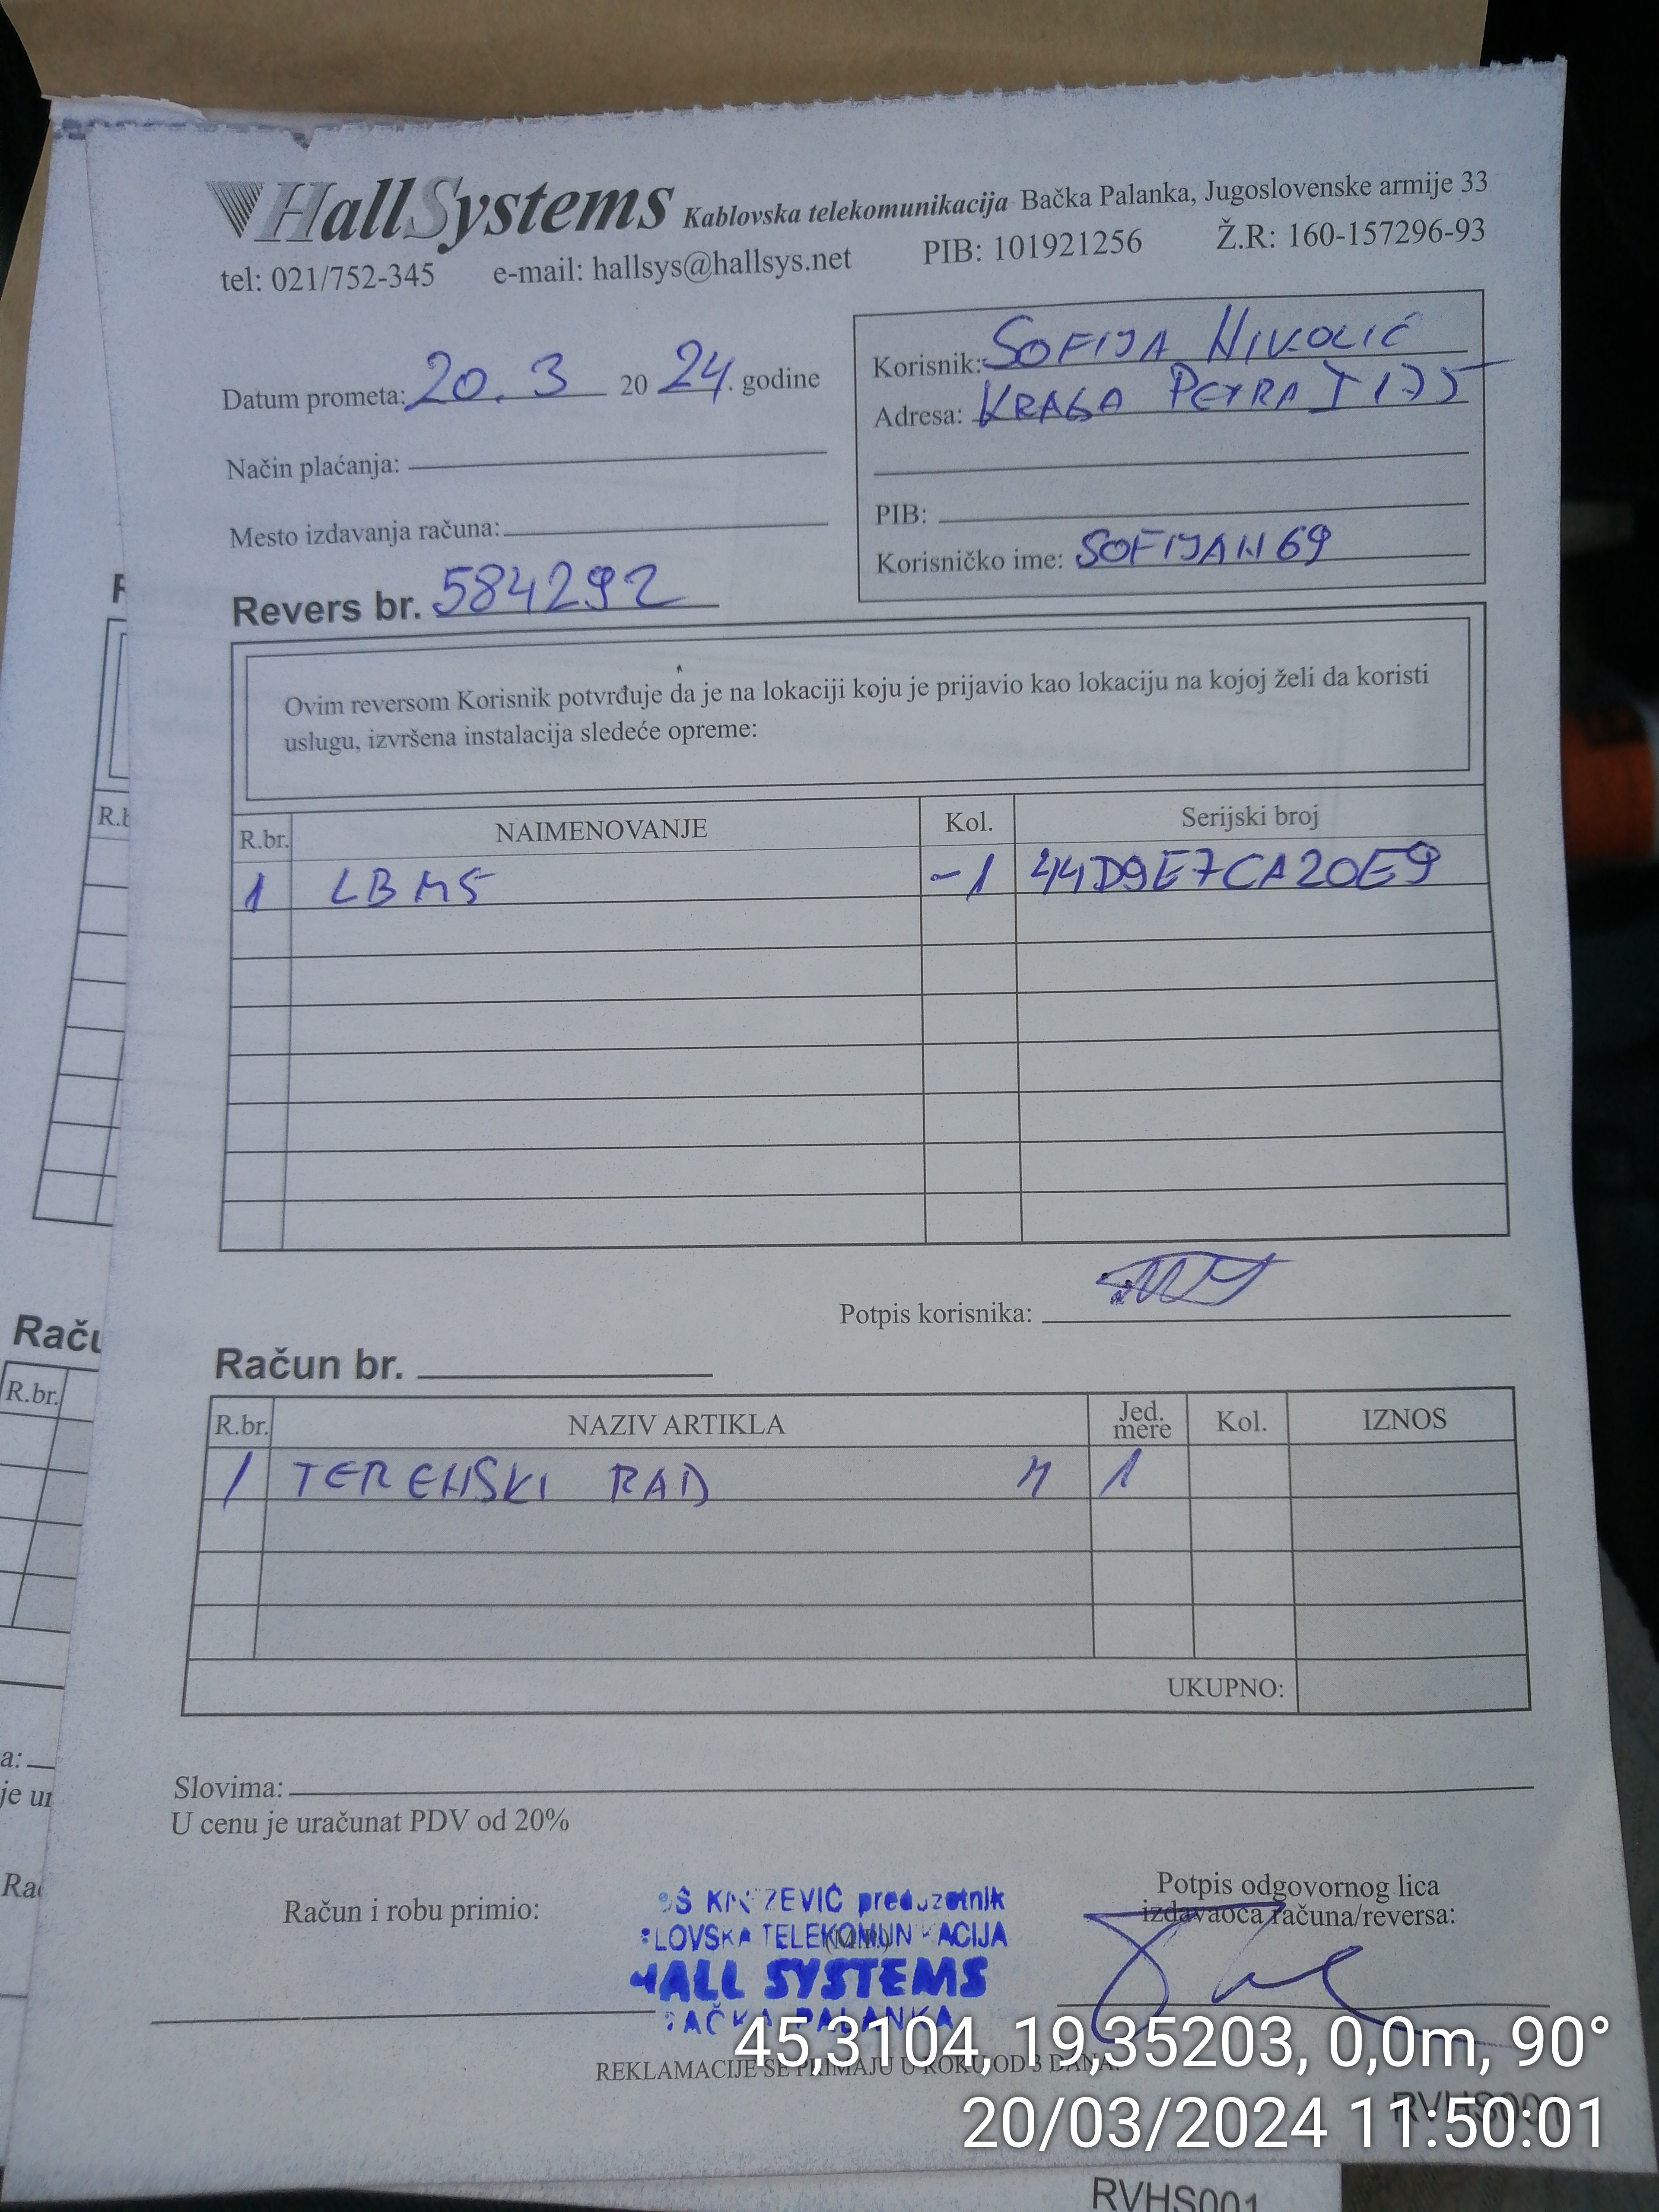 HallSystems Kablovska telekomunikacija Bačka Palanka, Jugoslovenske armije 33
tel: 021/752-345 e-mail: hallsys@hallsys.net PIB: 101921256 Ž.R: 160-157296-93
Datum prometa: 20.3 2024. godine
Korisnik: SOFIJA NIKOLIĆ
Adresa: KRAGA PETRA I 175
Način plaćanja:
Mesto izdavanja računa:
PIB:
Korisničko ime: SOFIJAN69
Revers br. 584292
Ovim reversom Korisnik potvrđuje da je na lokaciji koju je prijavio kao lokaciju na kojoj želi da koristi
uslugu, izvršena instalacija sledeće opreme:
R.br. NAIMENOVANJE Kol. Serijski broj
1 LBM5 -1 44D9E7CA20E9
Potpis korisnika:
Račun br.
R.br. NAZIV ARTIKLA Jed. mere Kol. IZNOS
1 TERENSKI RAD 1
UKUPNO:
Slovima:
U cenu je uračunat PDV od 20%
Račun i robu primio:
preduzetnik
TELEKOMUNIKACIJA
HALL SYSTEMS
BAČKA PALANKA
Potpis odgovornog lica
izdavaoca računa/reversa:
REKLAMACIJE SE PRIMAJU U ROKU OD 3 DANA.
RVHS001
45,3104, 19,35203, 0,0m, 90°
20/03/2024 11:50:01
R.br.
RVHS001